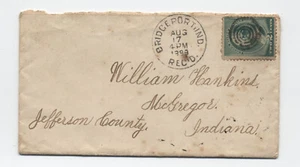 BRIDGEPORT, IND.
AUG
17
4 PM
REC'D.
William Hankins,
McGregor,
Jefferson County, Indiana.